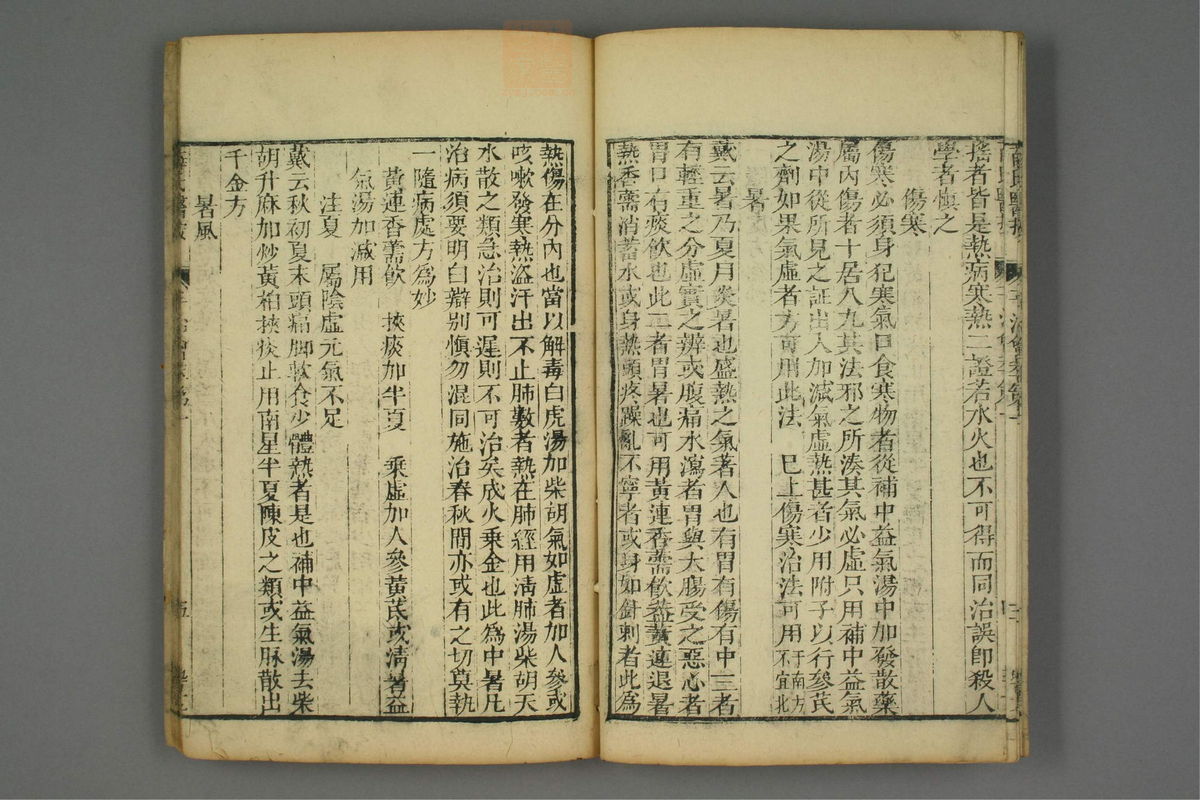 擔者皆是熱病寒熱二證若水火也不可得而同治誤卽殺人
學者愼之
傷寒
傷寒必須身犯寒氣口食寒物者從補中益氣湯中加發散藥
屬內傷者十居八九其法邪之所湊其氣必虛只用補中益氣
湯中從所見之証出入加減氣虛熱甚者少用附子以行參芪
之劑如果氣虛者方可用此法 巳上傷寒治法可用于南方不宜北
暑
戴云暑乃夏月炎暑也盛熱之氣著人也有冐有傷有中三者
有輕重之分虛實之辨或腹痛水瀉者胃與大腸受之惡心者
胃口有痰飮也此二者冐暑也可用黃連香薷飮蓋黃連退暑
熱香薷消蓄水或身熱頭疼躁亂不寧者或身如針刺者此爲
熱傷在分內也當以解毒白虎湯加柴胡氣如虛者加人參或
咳嗽發寒熱盜汗出不止脉數者熱在肺經用淸肺湯柴胡天
水散之類急治則可遲則不可治矣成火乗金也此爲中暑凡
治病須要明白辯別愼勿混同施治春秋間亦或有之切莫執
一隨病處方爲妙
黃連香薷飮 挾痰加半夏 乗虛加人參黃芪或淸暑益
氣湯加減用
注夏 屬陰虛元氣不足
戴云秋初夏末頭痛脚軟食少體熱者是也補中益氣湯去柴
胡升麻加炒黃柏挾痰止用南星半夏陳皮之類或生脉散出
千金方
暑風